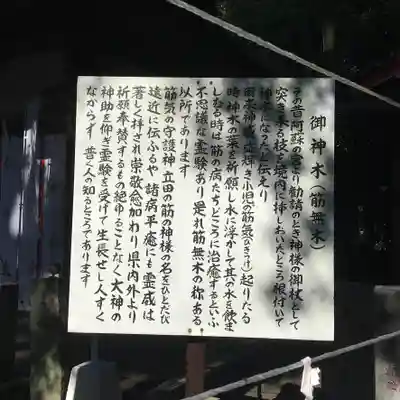 御神木（筋無木）
その昔阿蘇の宮より勧請のとき神様の御杖として
突き来る枝を境内に挿しおいたところ根付いて
神木になったと伝えり
神威 輝き小児の筋気（ひきつけ）起りたる
時神木の葉を祈願し水に浮かして其の水を飲ま
しむる時は筋の病たちどころに治癒するといふ
不思議な霊験あり是れ筋無木の称ある
以所であります
筋気の守護神立田の筋の神様の名をひとたび
遠近に伝ふるや諸病平癒にも霊威は
著しく拝され崇敬愈加わり県内外より
祈願奉賛するもの絶ゆることなく大神の
神助を仰ぎ霊験を受けて生長せし人すく
なからず 普く人の知るところであります